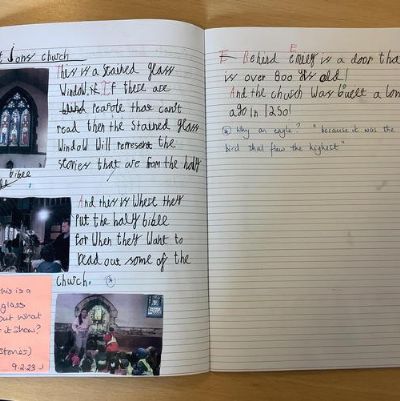 Jons church
This is a Stained glass
Window. If these are
peaople that can't
read then the Stained glass
Window Will represent the
stories that are from the holy
bible
And this is Where they
Put the holy bible
for When they Want to
read out some of the
church.
this is a
glass
but what
it show?
Stories)
9.2.23
Behind me is a door tha
is over 800 yrs old!
And the church was built a lon
ago in 1250!
Why an eagle? "because it was the
bird that flew the highest"